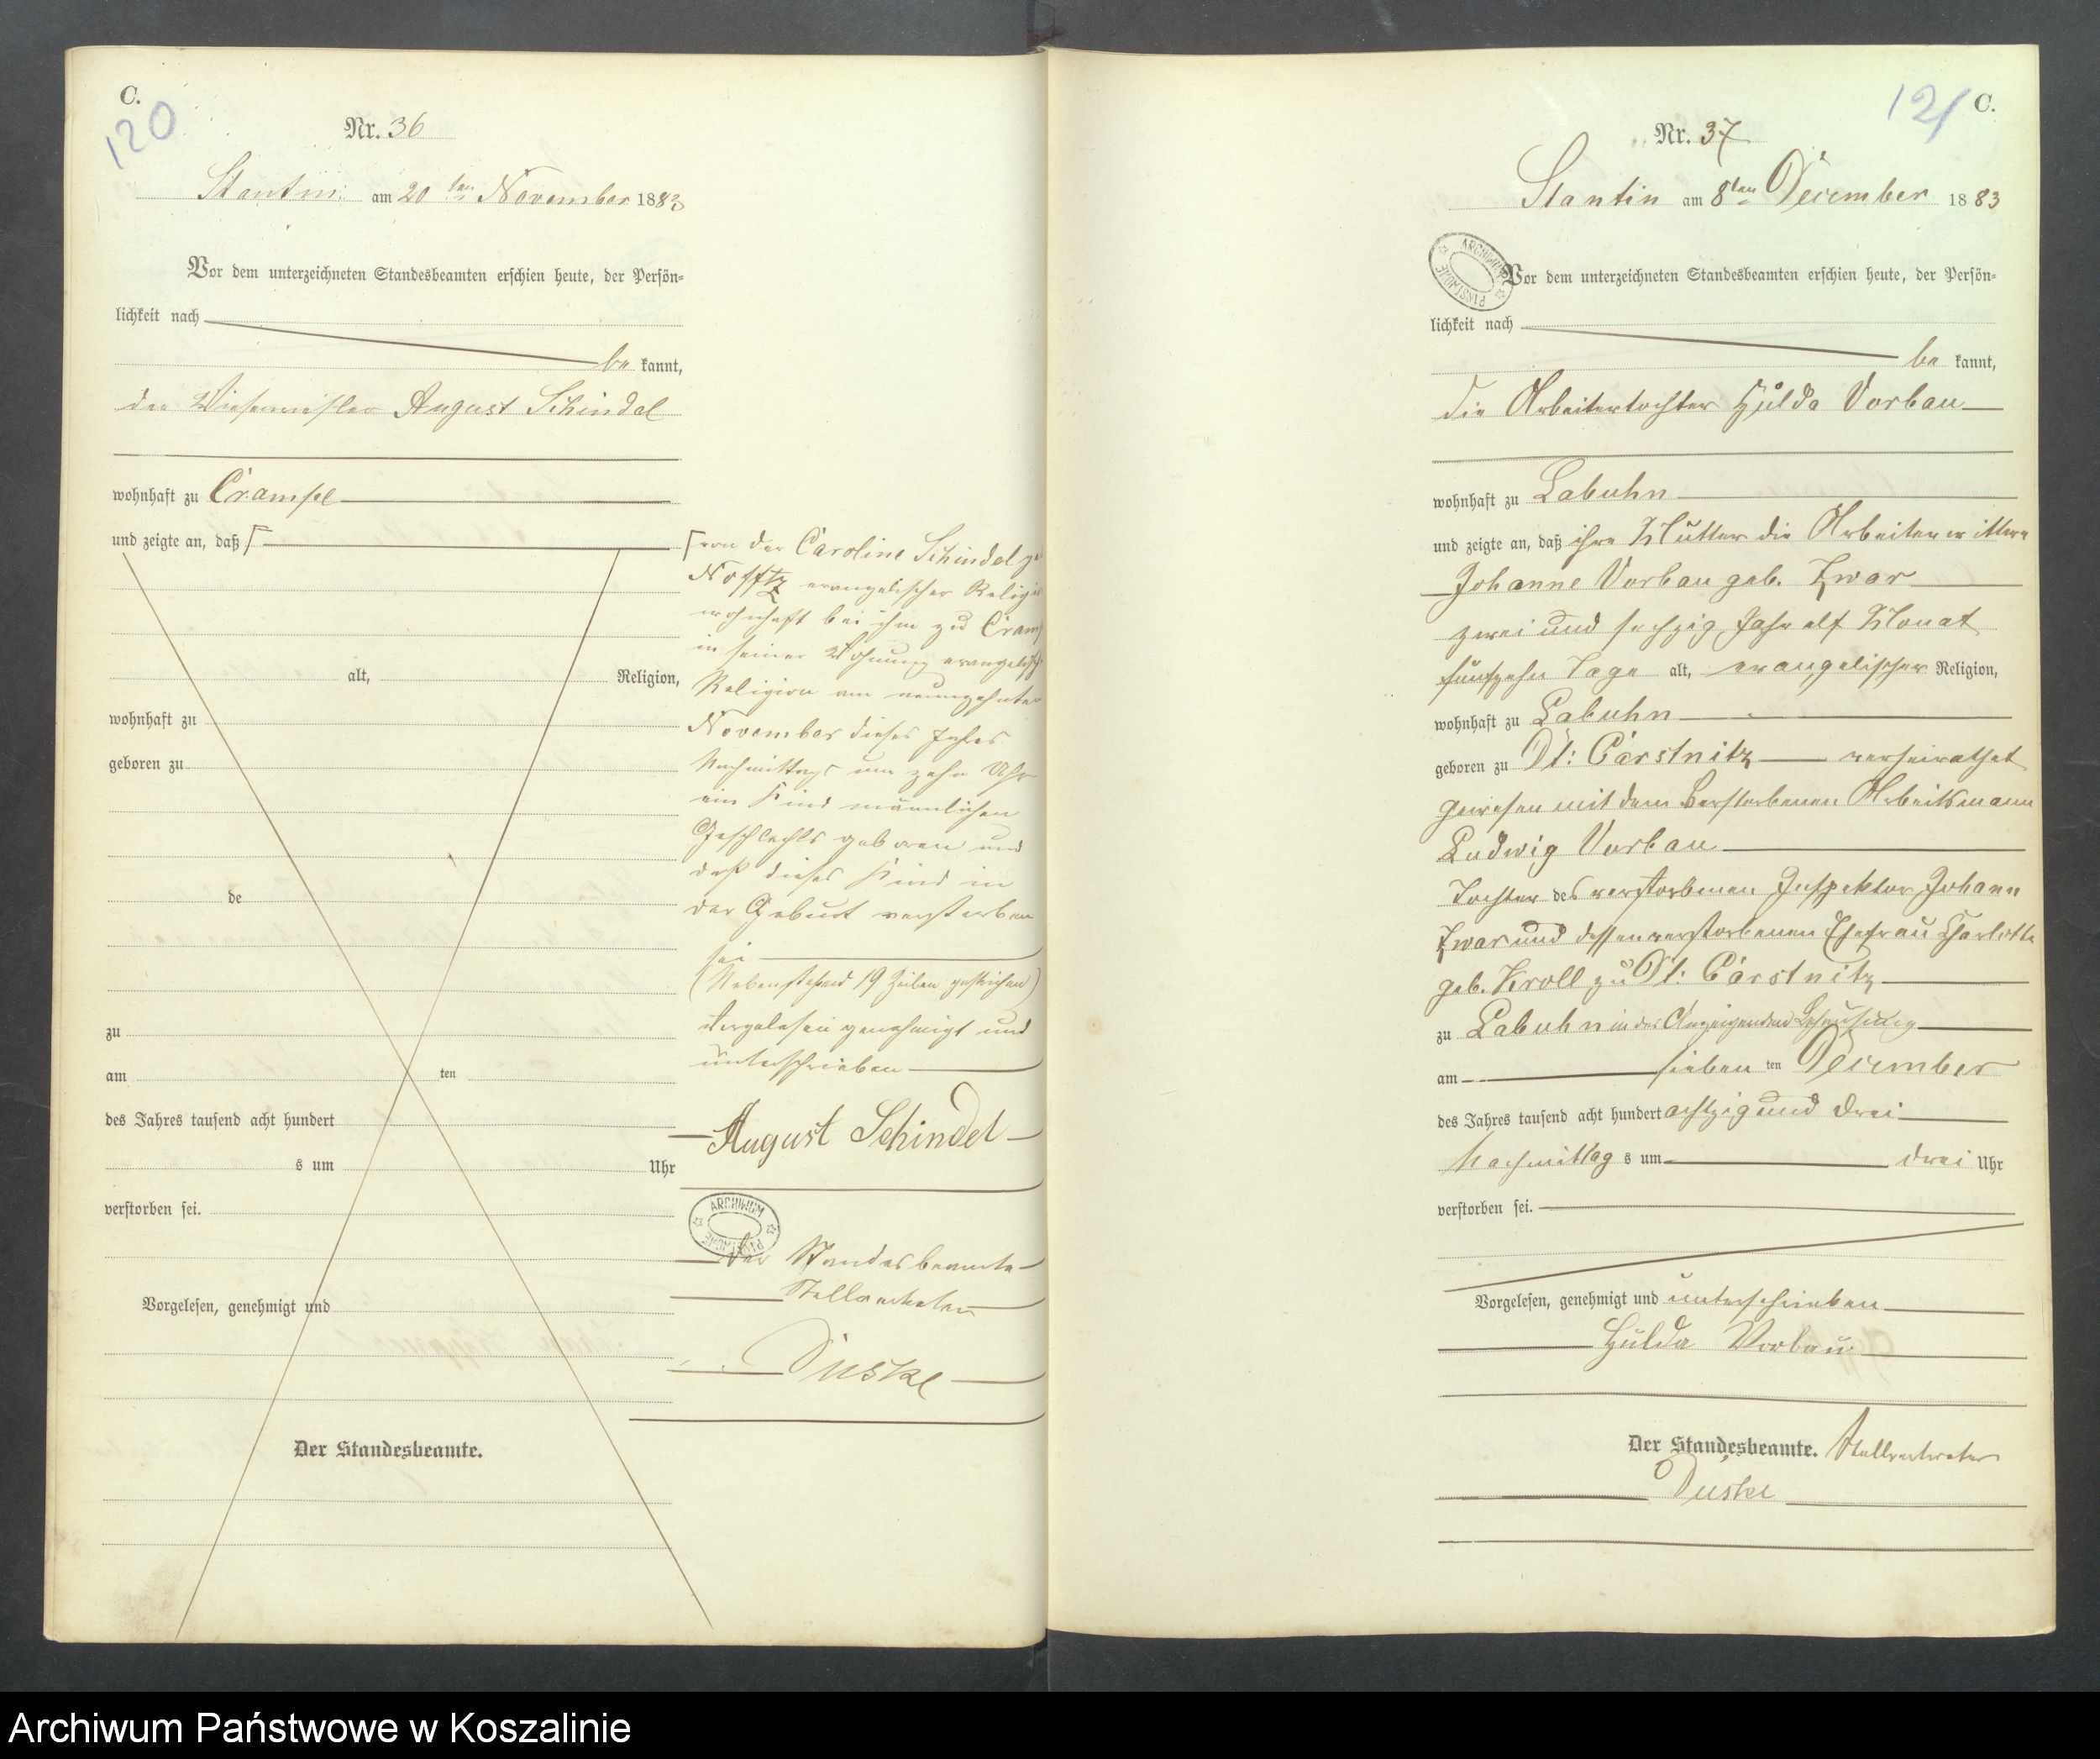 C.
120
Nr. 36
Stantin am 20ten November 1883
Vor dem unterzeichneten Standesbeamten erschien heute, der Persön-
lichkeit nach
be kannt,
der Wiesenmeister August Schindel
wohnhaft zu Crampe
und zeigte an, daß
alt, Religion,
wohnhaft zu
geboren zu
de
zu
am ten
des Jahres tausend acht hundert
s um Uhr
verstorben sei.
Vorgelesen, genehmigt und
Der Standesbeamte.
von der Caroline Schindel
Nofftz evangelischer
wohnhaft bei ihm zu
in seiner Wohnung
Religion am neunzehnten
November dieses Jahres
Nachmittags um zehn Uhr
ein Kind männlichen
Geschlechts geboren und
daß dieses Kind in
der Geburt verstorben
sei
(Nebenstehend 19 Zeilen gestrichen)
Vorgelesen genehmigt und
unterschrieben
August Schindel
ARCHIWUM PAŃSTWOWE
Der Standesbeamte
Stellvertreter
Duske
121
C.
Nr. 37
Stantin am 8ten December 1883
ARCHIWUM PAŃSTWOWE
Vor dem unterzeichneten Standesbeamten erschien heute, der Persön-
lichkeit nach
be kannt,
die Arbeitertochter Hulda Vorbau
wohnhaft zu Labuhn
und zeigte an, daß ihre Mutter die Arbeiterwittwe
Johanne Vorbau geb. Zwar
zwei und sechzig Jahr elf Monat
fünfzehn Tage alt, evangelischer Religion,
wohnhaft zu Labuhn
geboren zu Dt: Carstnitz verheirathet
gewesen mit dem verstorbenen Arbeitsmann
Ludwig Vorbau
Tochter des verstorbenen Inspektor Johann
Zwar und dessen verstorbenen Ehefrau Charlotte
geb. Kroll zu Dt: Carstnitz
zu Labuhn in der Anzeigenden Behausung
am sieben ten December
des Jahres tausend acht hundert achtzig und drei
Nachmittag s um drei Uhr
verstorben sei.
Vorgelesen, genehmigt und unterschrieben
Hulda Vorbau
Der Standesbeamte. Stellvertreter
Duske
Archiwum Państwowe w Koszalinie